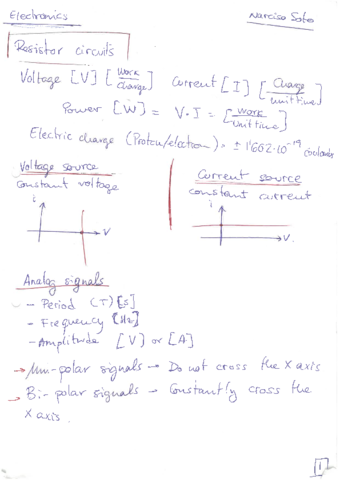 Electronics Narciso Soto
Resistor circuits
Voltage [V] [work/charge] Current [I] [Charge/unit time]
Power [W] = V·I = [work/unit time]
Electric charge (Proton/electron) = ± 1'602·10⁻¹⁹ coulombs
Voltage source Current source
constant voltage constant current
i i
V V
Analog signals
- Period (T) [s]
- Frequency [Hz]
- Amplitude [V] or [A]
→ Uni-polar signals → Do not cross the X axis
→ Bi-polar signals → Constantly cross the
X axis.
1